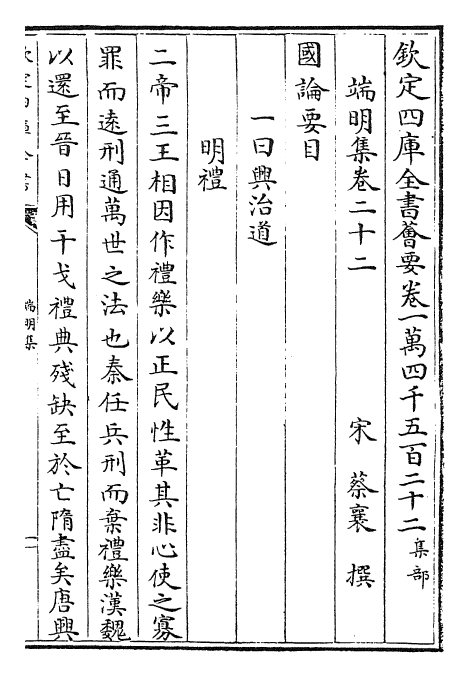 欽定四庫全書薈要卷一萬四千五百二十二集部
端明集卷二十二 宋 蔡襄 撰
國論要目
一曰興治道
明禮
二帝三王相因作禮樂以正民性革其非心使之寡
罪而遠刑通萬世之法也秦任兵刑而棄禮樂漢魏
以還至晉日用干戈禮典殘缺至於亡隋盡矣唐興
端明集
一